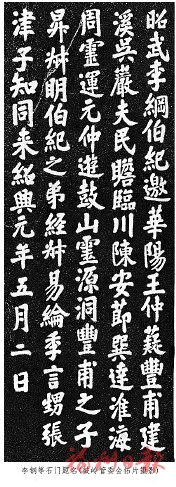 昭武李綱伯紀邀華陽王仲薿豐甫建
溪吳巖夫民瞻臨川陳安節巽達淮海
周靈運元仲遊鼓山靈源洞豐甫之子
昇叔明伯紀之弟經叔易綸季言甥張
津子知同来紹興元年五月二日
福州晚报
李钢等石门题名(鼓岭管委会 片摄影)